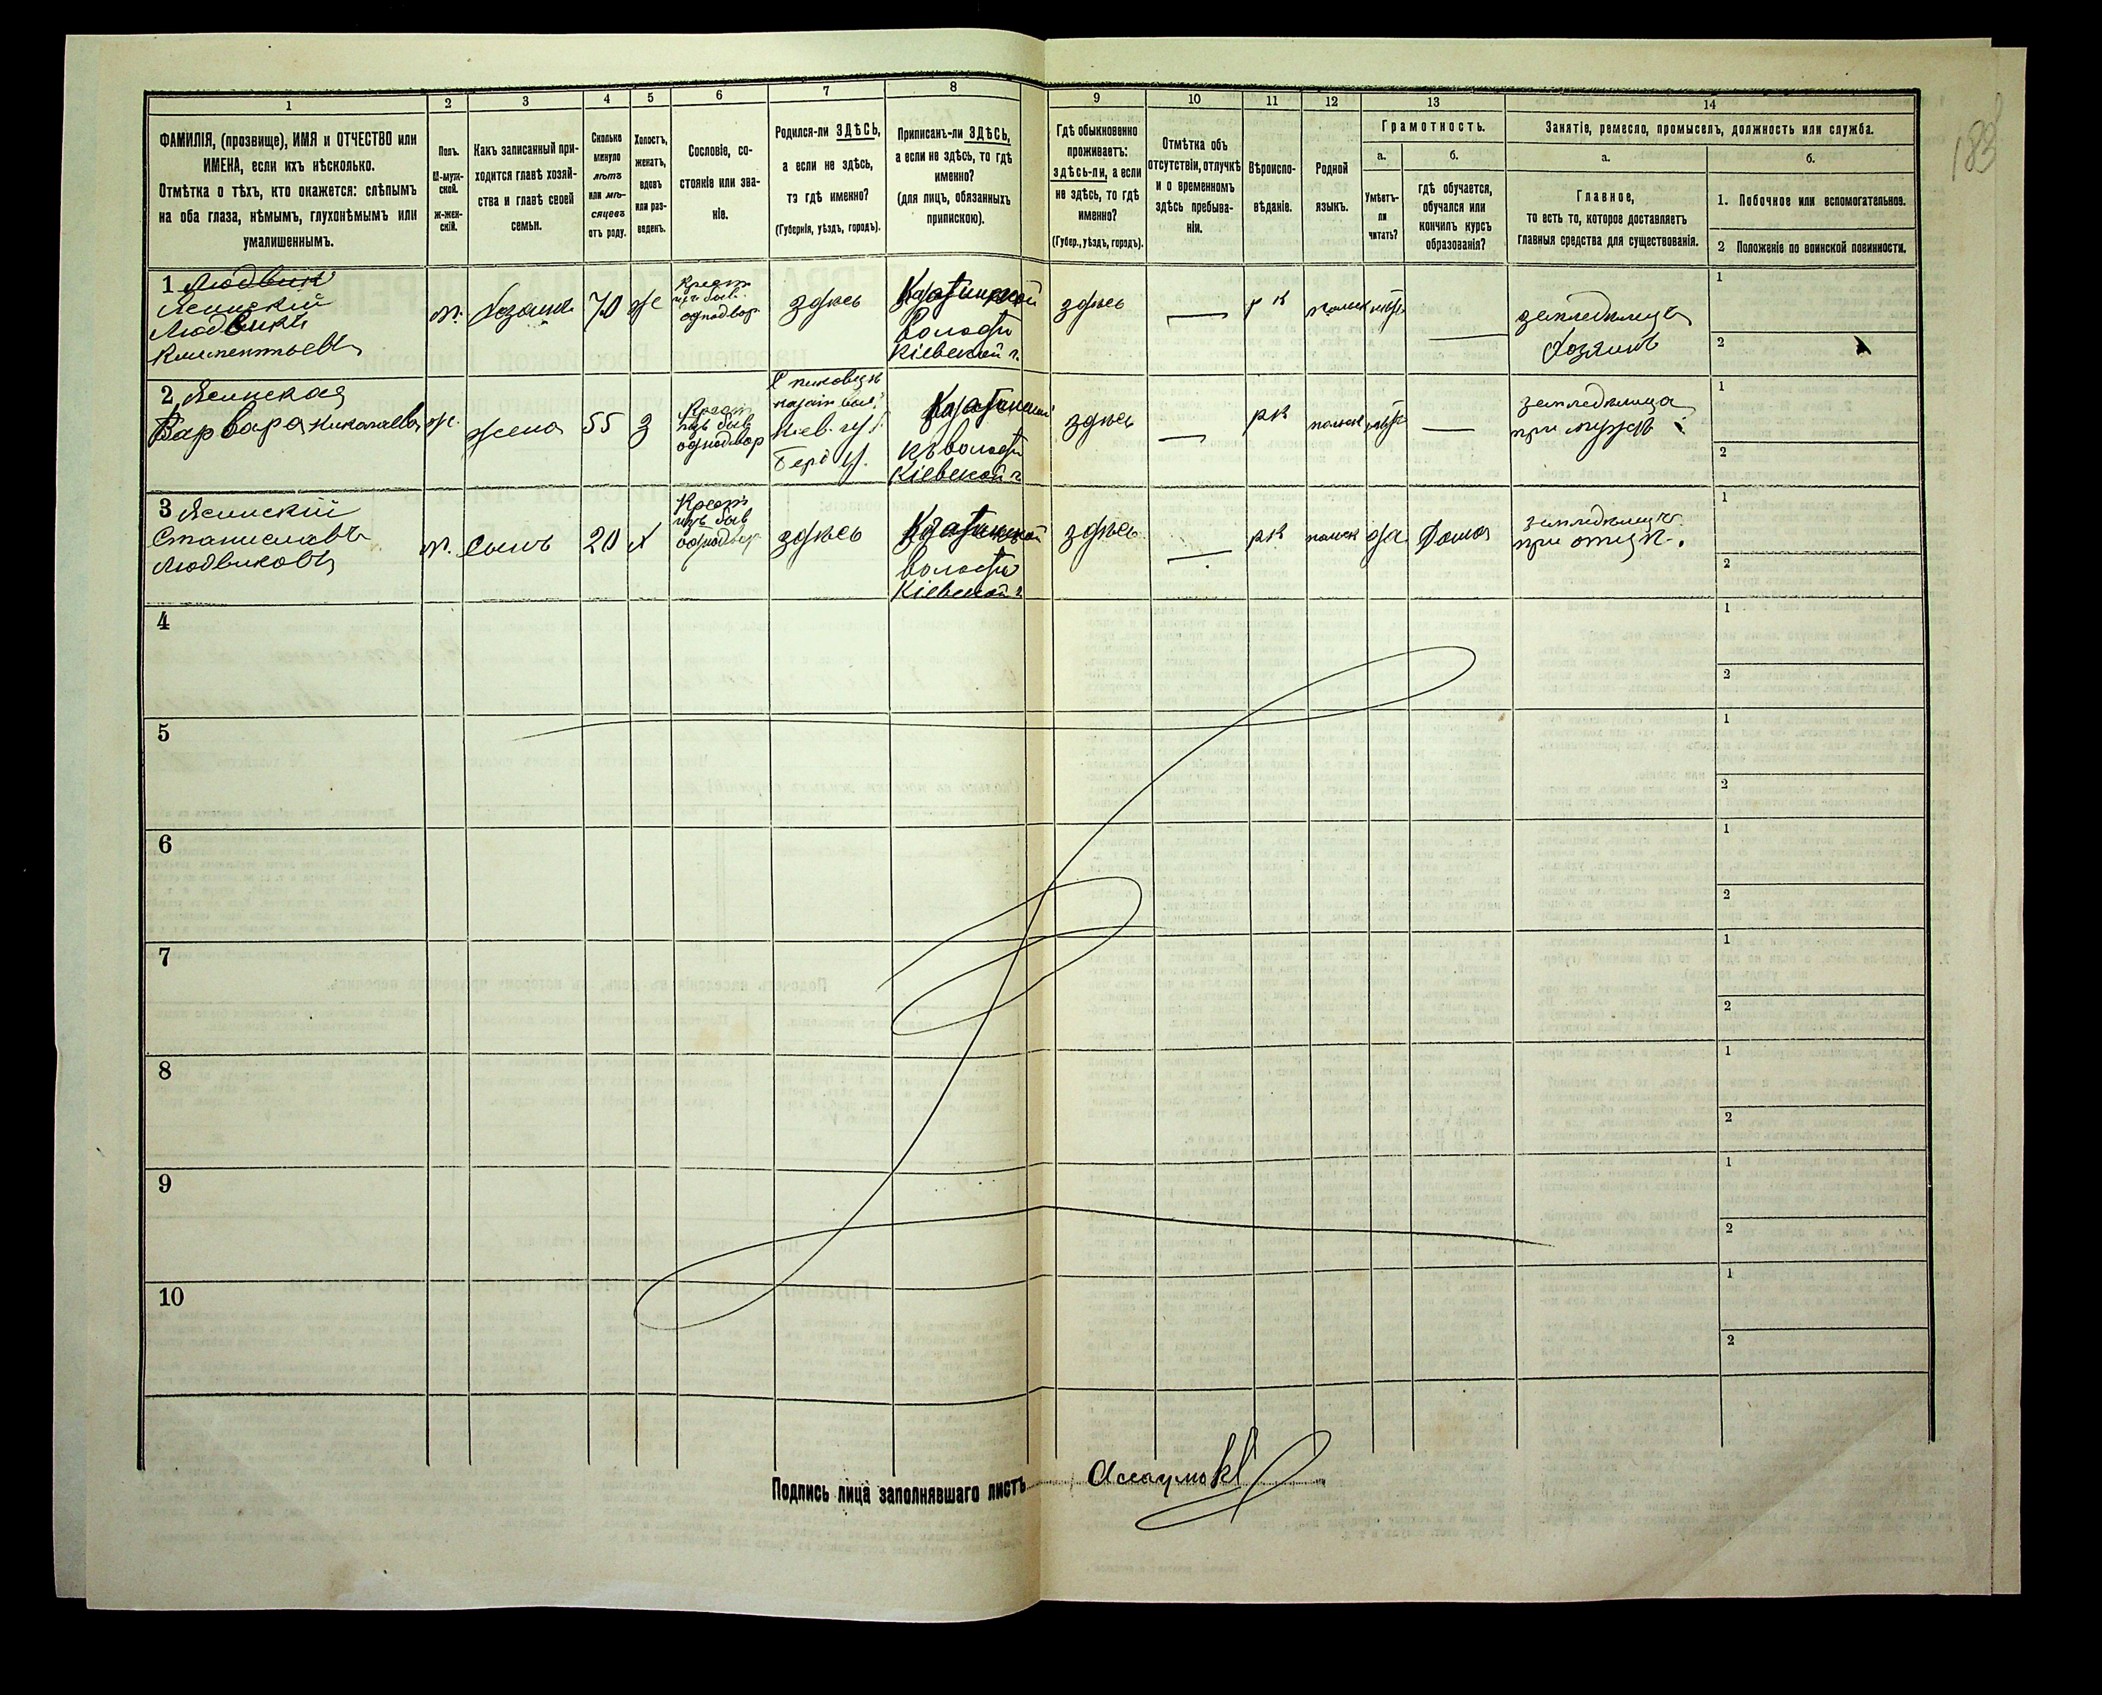 183
1 2 3 4 5 6 7 8 9 10 11 12 13 14
ФАМИЛІЯ, (прозвище), ИМЯ и ОТЧЕСТВО или
ИМЕНА, если ихъ нѣсколько.
Отмѣтка о тѣхъ, кто окажется: слѣпымъ
на оба глаза, нѣмымъ, глухонѣмымъ или
умалишеннымъ.
Полъ.
М-муж-
ской.
ж-жен-
скій.
Какъ записанный при-
ходится главѣ хозяй-
ства и главѣ своей
семьи.
Сколько
минуло
лѣтъ
или мѣ-
сяцевъ
отъ роду.
Холостъ,
женатъ,
вдовъ
или раз-
веденъ.
Сословіе, со-
стояніе или зва-
ніе.
Родился-ли ЗДѢСЬ,
а если не здѣсь,
то гдѣ именно?
(Губернія, уѣздъ, городъ).
Приписанъ-ли ЗДѢСЬ,
а если не здѣсь, то гдѣ
именно?
(для лицъ, обязанныхъ
припискою).
Гдѣ обыкновенно
проживаетъ:
здѣсь-ли, а если
не здѣсь, то гдѣ
именно?
(Губер., уѣздъ, городъ).
Отмѣтка объ
отсутствіи, отлучкѣ
и о временномъ
здѣсь пребыва-
ніи.
Вѣроиспо-
вѣданіе.
Родной
языкъ.
Грамотность.
а.
Умѣетъ-
ли
читать?
б.
гдѣ обучается,
обучался или
кончилъ курсъ
образованія?
Занятіе, ремесло, промыселъ, должность или служба.
а.
Главное,
то есть то, которое доставляетъ
главныя средства для существованія.
б.
1. Побочное или вспомогательное.
2 Положеніе по воинской повинности.
1 Людвик
Ясинский
Людвикъ
Климентьевъ
м. Хозяин 70 ж
Крест
изъ быв.
однодвор
здѣсь
Казатинской
волости
Кіевской г.
здѣсь — р к польск нѣт —
земледѣлецъ
Хозяинъ
1
2
2 Ясинская
Варвара Николаева
ж. жена 55 з
Крест
изъ быв
однодвор
Кіев. гу.
Берд у.
волости
Кіевской г.
здѣсь — рк польск нѣт —
земледѣлица
при мужѣ
1
2
3 Ясинскій
Станиславъ
Людвиковъ
м. Сынъ 20 х
Крест
изъ быв
однодвор
здѣсь
Казатинской
волости
Кіевской г
здѣсь — рк польск да Дома
земледѣлецъ
при отцѣ.
1
2
4 1
2
5 1
2
6 1
2
7 1
2
8 1
2
9 1
2
10 1
2
Подпись лица заполнявшаго листъ